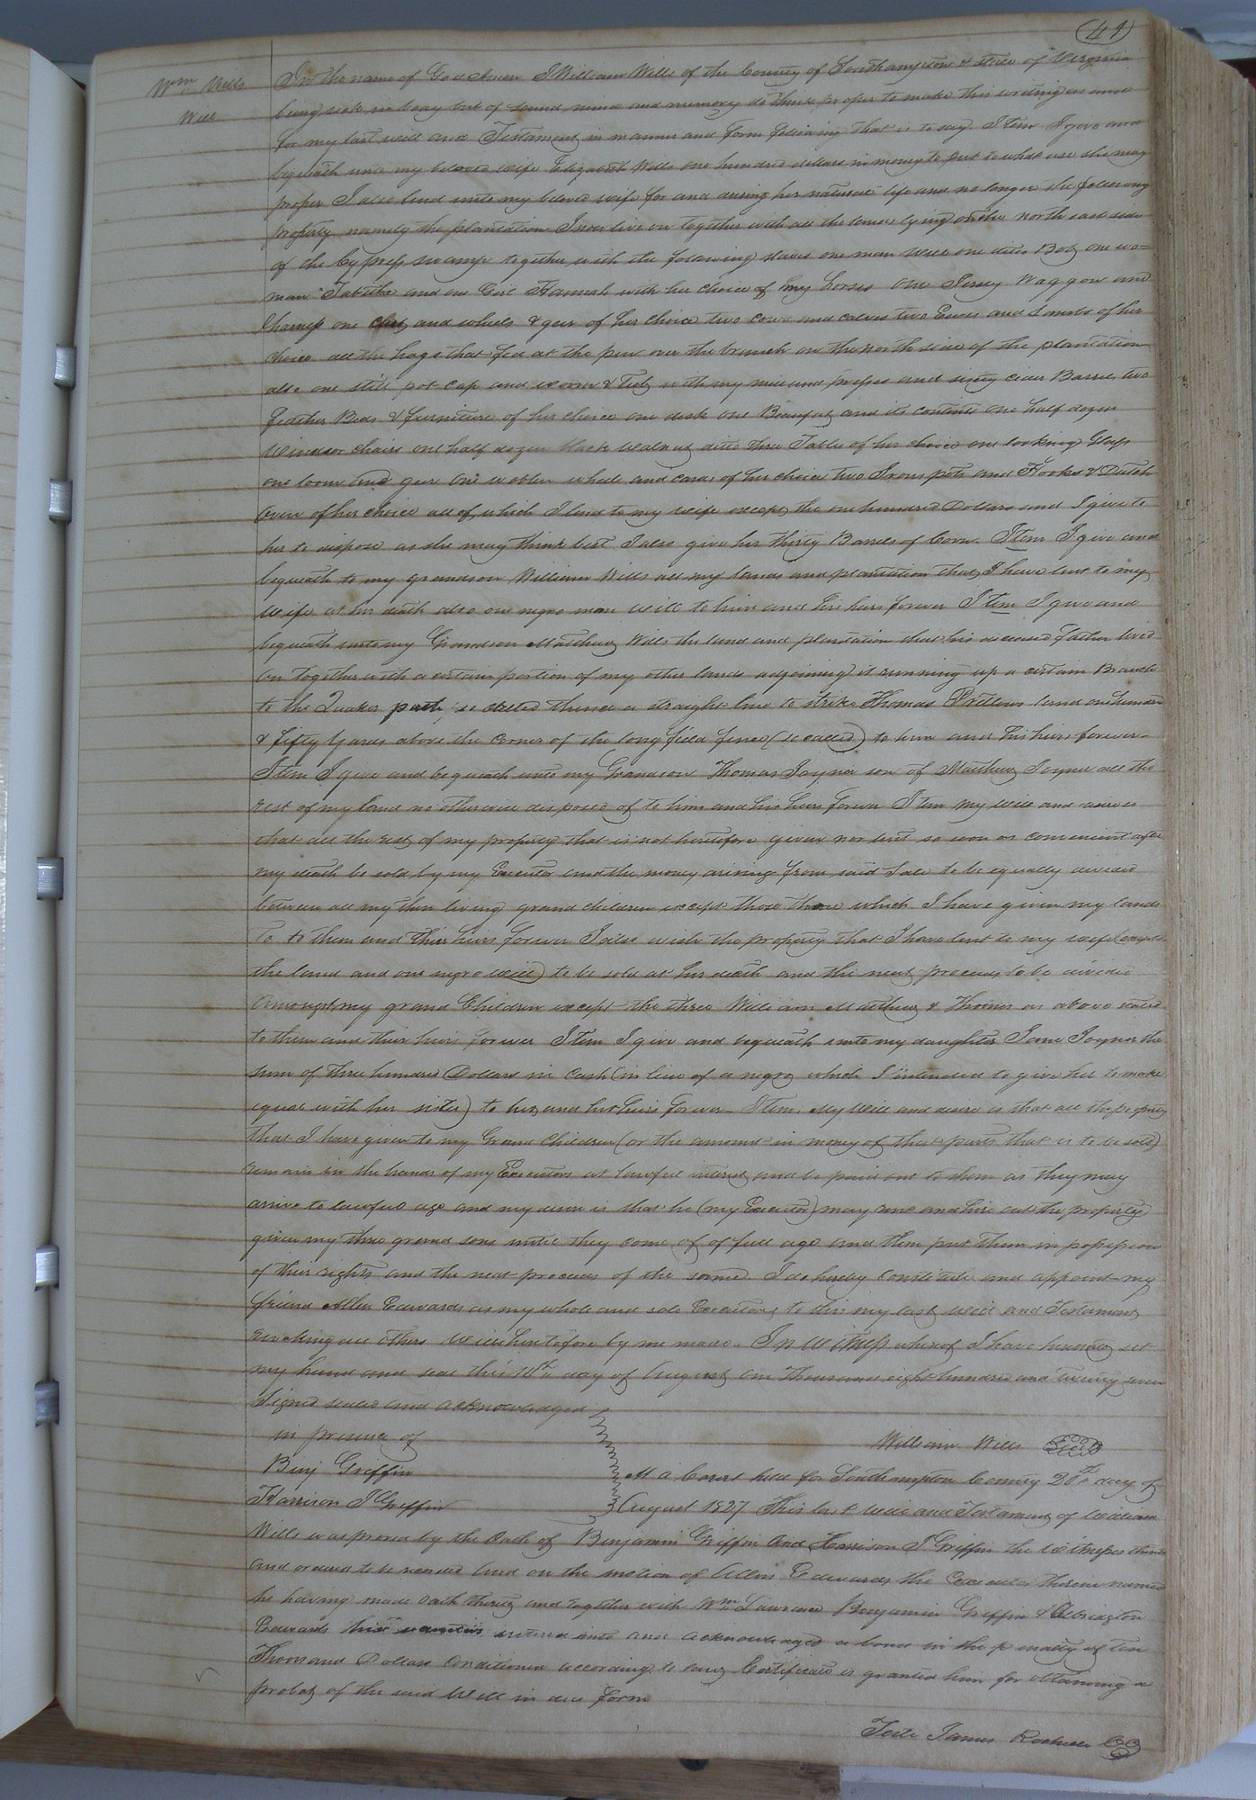 41
Wm Wills
Will
In the name of God Amen I William Wills of the County of Southampton & State of Virginia
being sick in boay but of sound mind and memory do think proper to make this wrighting as and
for my last will and Testament in manner and form following That is to say. Item I give and
bequeath unto my beloved wife Elizabeth Wills one hundred dollars in money to put to what use she may
proper I also lend unto my beloved wife for and during her natural life and no longer the following
property namely the plantation I now live on together with all the land lying on the north east side
of the Cypress swamp together with the following slaves one man Will one ditto Bob one wo=
man Tabitha and one Girl Hannah with her choice of my horses one Jersey Waggon and
Harness one and wheels & gear of her choice two cows and calves two Ewes and Lambs of her
choice all the hogs that fed at the pen over the branch on the North side of the plantation
also one still pot cap and worm & Tub with my mill and presses and sixty cider Barrels two
feather Beds & furniture of her choice one desk one Beaufat and its contents one half dozen
Windsor chairs one half dozen black walnut ditto three Tables of her choice one looking Glass
one loom and gear one woolen wheele and cards of her choice two Irons pots and Hooks & Dutch
Oven of her choice all of which I lend to my wife except the one hundred Dollars and I give to
her to dispose as she may think best I also give her thirty Barrels of Corn. Item I give and
bequeath to my grandson William Wills all my lands and plantation that I have lent to my
wife at her death also one negro man Will to him and his heirs forever Item I give and
bequeath unto my Grandson Matthew Wills the land and plantation that his deceased father lived
on together with a certain portion of my other lands adjoining it running up a certain Branch
to the Quaker path so called thence a straight line to strike Thomas Pretlows land one hundred
& fifty yards above the corner of the long field fence (so called) to him and his heirs forever-
Item I give and bequeath unto my Grandson Thomas Joyner son of Matthew Joyner all the
rest of my land not otherwise disposed of to him and his heirs forever Item my will and desire is
that all the rest of my property that is not heretofore given nor lent so soon as convenient after
my death be sold by my Executor and the money arising from said sale to be equally divided
between all my then living grand children except those three which I have given my lands
to to them and their heirs forever I also wish the property that I have lent to my wife (except
the land and one negro Will) to be sold at her death and the neat proceeds to be divided
amongst my grand Children except the three William Matthew & Thomas as above stated
to them and their heirs forever Item I give and bequeath unto my daughter Jane Joyner the
sum of three hundred Dollars in cash (in lieu of a negro which I intended to give her to make
equal with her sister) to her and her heirs forever Item. My Will and desire is that all the property
that I have given to my Grand Children (or the amount in money of that part that is to be sold)
remain in the hands of my Executors at lawful interest and be paid out to them as they may
arrive to lawful age and my desire is that he (my Executor) may rent and hire out the property
given my three grand sons untill they come of of full age and then put them in possession
of their rights and the neat proceeds of the same I do hereby constitute and appoint my
friend Allen Edwards as my whole and sole Executors to this my last Will and Testament
revoking all others Wills heretofore by me made. In Witness whereof I have hereunto set
my hand and seal this 10th day of August one Thousand eight hundred and twenty seven
Signed sealed and acknowledged
in presence of
William Wills Seal
Benj Griffin
Harrison J Griffin
At a Court held for Southampton County 20th day of
August 1827 This last Will and Testament of William
Wills was proved by the oath of Benjamin Griffin and Harrison J Griffin the witnesses thereto
and ordered to be recorded and on the motion of Allen Edwards the Executor therein named
he having made oath thereto and together with Wm Lawrence Benjamin Griffin & Albridgton
Edwards entered into and acknowledged a bond in the penalty of ten
Thousand Dollars conditioned according to law Certificate is granted him for obtaining a
probat of the said Will in due form
Teste James Rochelle CC